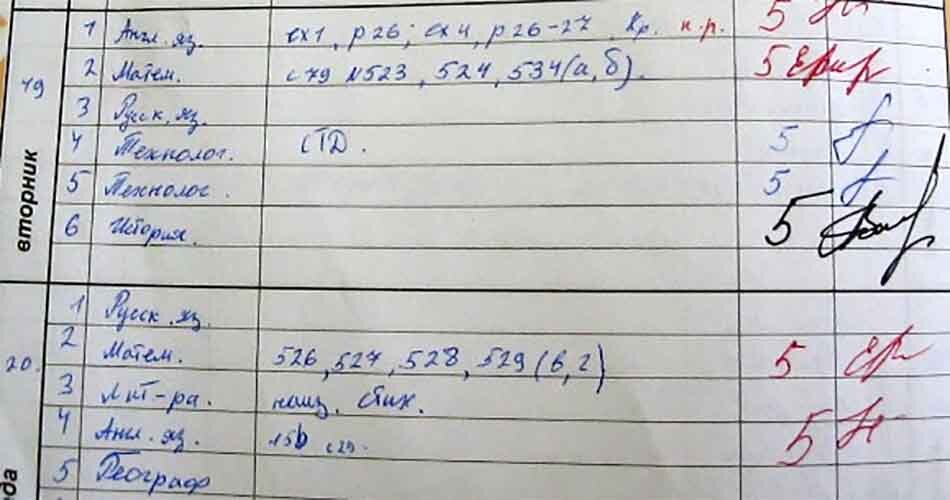 19
вторник
1 Англ. яз. ex 1, p 26; ex 4, p 26-27 Кр. н.р. 5
2 Матем. с 79 №523, 524, 534(а, б). 5
3 Русск. яз.
4 Технолог. СТД. 5
5 Технолог. 5
6 История. 5
20.
да
1 Русск. яз.
2 Матем. 526, 527, 528, 529 (в, г) 5
3 Лит-ра. наиз. стих.
4 Англ. яз. 15b с29. 5
5 Географ